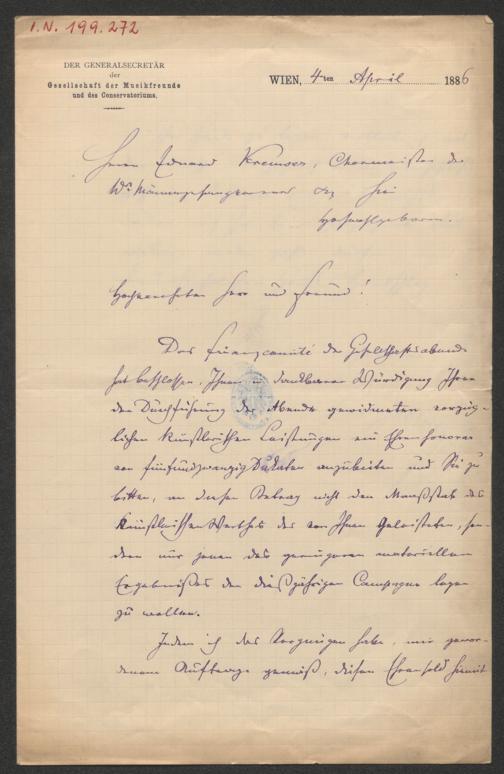 I.N. 199.272
DER GENERALSECRETÄR
der
Gesellschaft der Musikfreunde
und des Conservatoriums.
WIEN, 4ten April 1886
Herrn Eduard Kremser, Chormeister des
Wr. Männergesangverein etz. hier
Hochwohlgeboren.
Hochverehrter Herr und Freund!
Das Finanzcomité der Gesellschaftsabende
hat beschlossen, Ihnen in dankbarer Würdigung Ihrer
der Durchführung der Abende gewidmeten vorzüg-
lichen künstlerischen Leistungen ein Ehrenhonorar
von fünfundzwanzig Dukaten anzubieten und Sie zu
bitten, an diesen Betrag nicht den Maßstab des
künstlerischen Werthes des von Ihnen Geleisteten, son-
dern nur jenen des geringeren materiellen
Ergebnißes der dießjährigen Campagne legen
zu wollen.
Indem ich das Vergnügen habe, mir gewor-
denem Auftrage gemäß, diesen Ehrensold hiemit